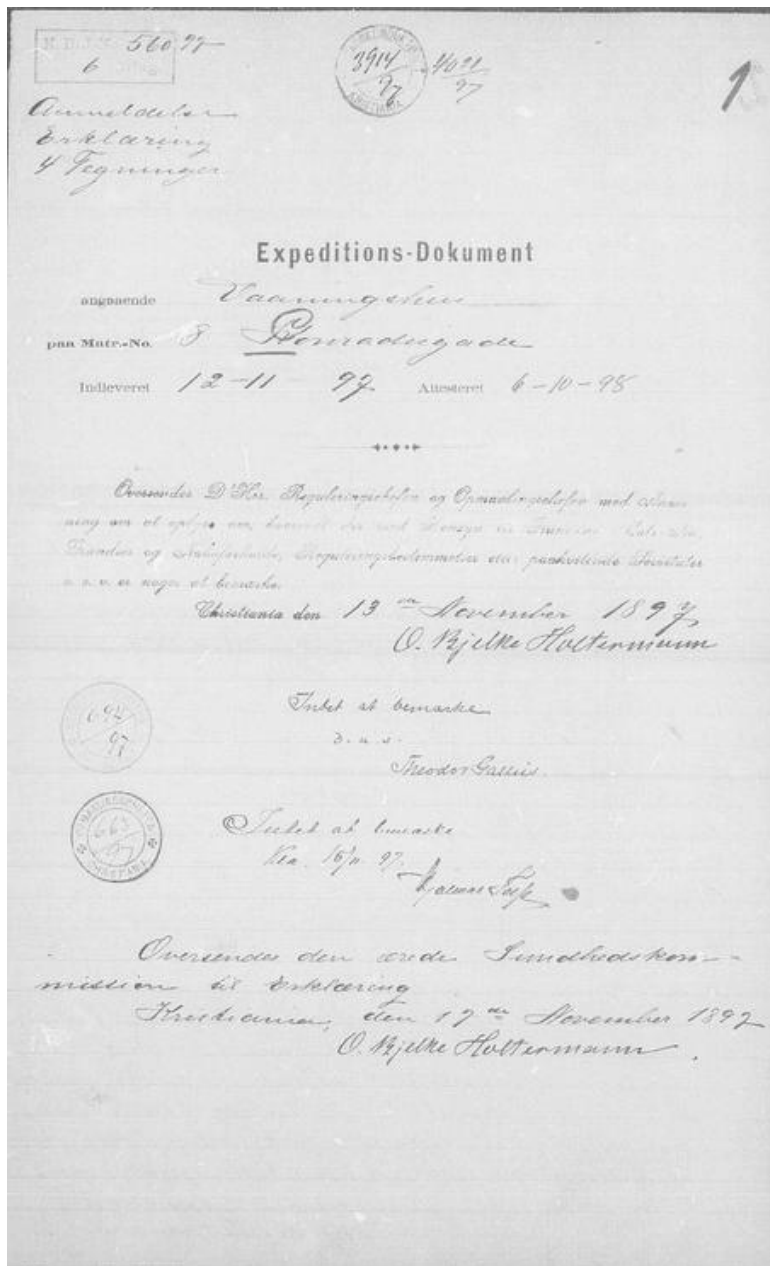 560 97
6
3914
97
4091
97
1
Anmeldelse
Erklæring
4 Tegninger
Expeditions-Dokument
angaaende Vaaningshus
paa Matr.-No. 8 Conradisgade
Indleveret 12-11 97 Attesteret 6-10-98
Oversendes D'Hrr. Reguleringschefen og Opmaalingschefen med
ning om at oplyse om, hvorvidt der med Hensyn til
Reguleringsbestemmelser eller paahvilende Servituter
o. s. v. er noget at bemærke.
Christiania den 13 de November 1897
O. Bjelke Holtermann
694
97
Intet at bemærke
D. u. s.
Theodor
663
97
KRISTIANIA
Intet at bemærke
Kra. 16/11 97.
Oversendes den ærede Sundhedskom-
mission til Erklæring
Kristiania, den 17 de November 1897
O. Bjelke Holtermann